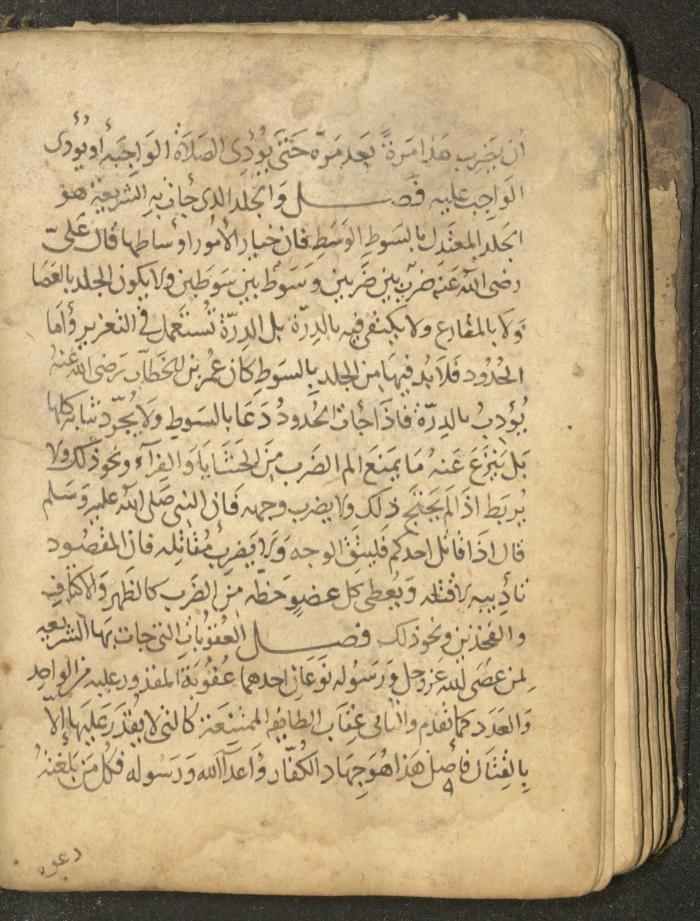 ان يضرب هذا مرةً بعد مرّه حتى يُؤدي الصَلاَة الوَاجِبَه أو يُؤدى
الوَاجِب عليه فصـــــل وَالجلد الذى جات به الشريعَة هو
الجَلد المعتَدل بالسَوطِ الوَسَطِ فان خيار الأمُور أوسَاطها قال عَلىّ
رضى الله عَنه ضربٌ بين ضَربين وسَوطٌ بين سَوطَين ولا يكون الجلد بالعَصَا
وَلا بالمقَارع ولا يكتفى فيه بالدِرّة بل الدِرّة تُستَعمل فى التعزير وأمَا
الحُدُود فلاَ بُد فيهَا من الجلد بِالسَوطِ كان عُمر بن الخطاب رَضى الله عَنهُ
يُؤدبُ بالدِرّة فاذَا جَات الحُدودُ دَعَا بالسَوطِ وَلا يُجَرّد ثيابه كلها
بَل يُنزَع عَنهُ مَا يَمنَع الم الضَرب مِنَ الحَشَايَا وَالفِرآء ونحو ذلك ولا
يُربَط اذَا لم يحتَج ذلك وَلا يضرب وجهه فَان النبى صَلى الله عليه وَسَلم
قال اذَا قاتل احدكم فليتق الوجه وَلاَ يَضرب مقَاتله فان المقصُود
تأديبه لا قتله وَيُعطى كل عضوٍ حَظّه منَ الضَرب كالظهر وَالاكتاف
والفخذين ونحو ذلك فصـــــل العُقوبَات التى جات بَها الشريعه
لمن عَصَى الله عَز وجل وَرَسُوله نَوعَان احدهما عُقُوبَة المقدُور عليه من الوَاحِد
وَالعَدَد كمَا تقدم والثَانى عِقَاب الطايفه الممتنعَة كالتى لا يُقدَر عَليهَا إلاّ
بِالقِتَال فأصل هَذا هُوَ جِهَاد الكُفّار وَاَعدَآ الله وَرَسوله فكُل مَن بَلَغتهُ
دعوه